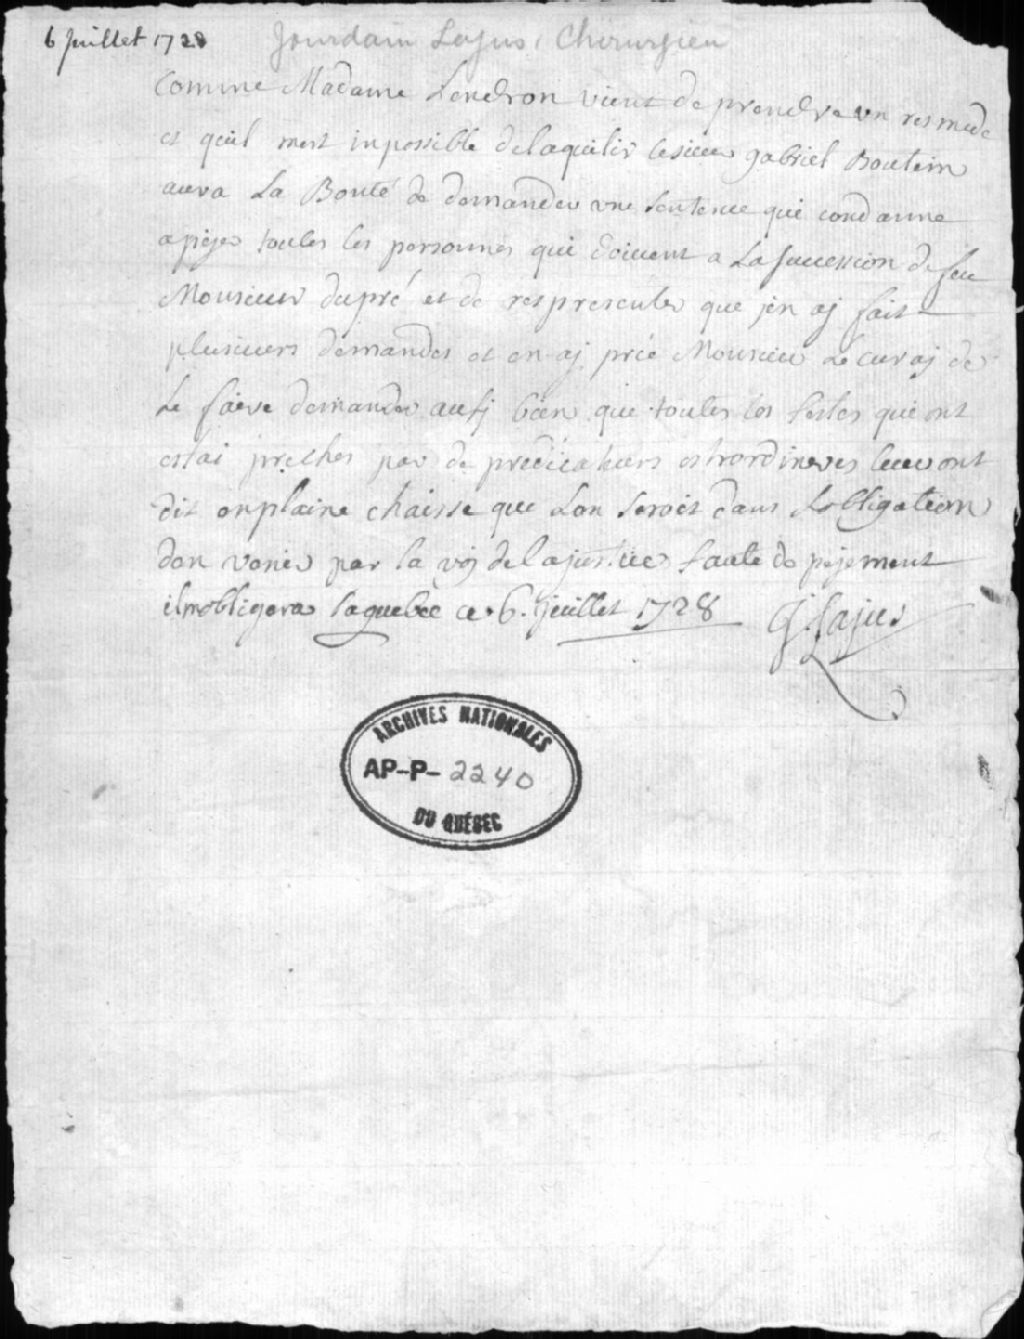 6 Juillet 1728 Jourdain Lajus, Chirurgien
Comme Madame Lendron vient de prendre un resmede
et quil mest inpossible de laquilir lesieur gabriel Boutein
aura La Bonté de demander une sentence qui condanne
apeyer toutes les personnes qui doivent a La sucession de feu
Monsieur dupré et de respresenter que jen aj fait
plusieurs demandes et en aj prié Monsieur Le curaj de
Le faire demander ausj bien que toutes les festes qui ont
estai preches par de predicateurs estrordineres leur ont
dit enplaine chaisse que Lon seroit dans Lobligation
dan venir par la voj delajustice faute de pejement
ilmobligera faquebec ce 6. juillet 1728 J. Lajus
ARCHIVES NATIONALES
AP-P- 2240
DU QUÉBEC